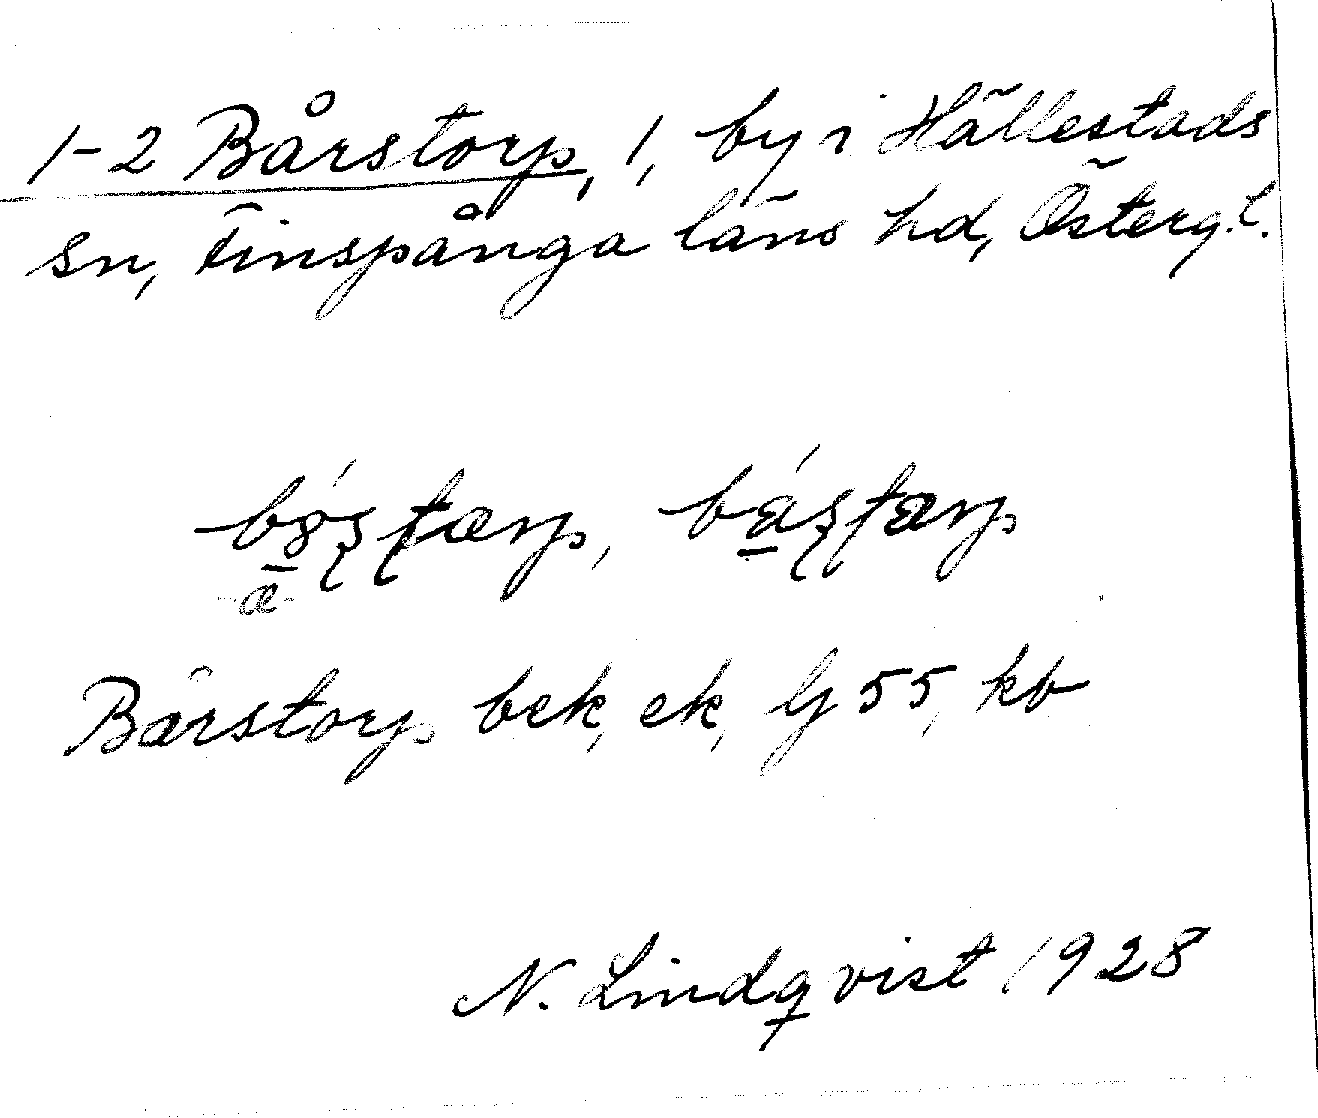 1-2 Bårstorp, 1, by i Hällestads
sn, Finspånga läns hd, Östergl.
Bårstorp bek, ek, Gj 55, kb
N. Lindqvist 1928